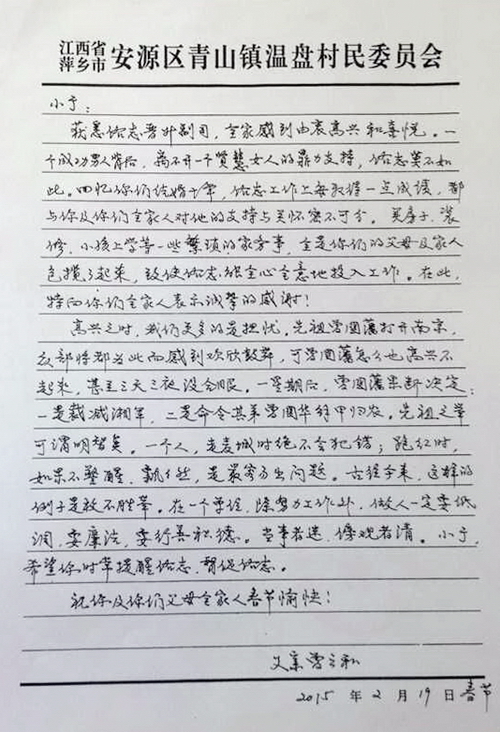 江西省
萍乡市 安源区青山镇温盘村民委员会
小于：
获悉佑志晋升副司，全家感到由衷高兴和喜悦。一
个成功男人背后，离不开一个贤慧女人的鼎力支持，佑志莫不如
此。回忆你们结婚十年，佑志工作上每取得一点成绩，都
与你及你们全家人对他的支持与关怀密不可分。买房子、装
修、小孩上学等一些繁琐的家务事，全是你们的父母及家人
包揽了起来，致使佑志能全心全意地投入工作。在此，
特向你们全家人表示诚挚的感谢！
高兴之时，我们更多的是担忧。先祖曾国藩打开南京，
众部将都为此而感到欢欣鼓舞，可曾国藩怎么也高兴不
起来，甚至三天三夜没合眼。一星期后，曾国藩果断决定：
一是裁减湘军，二是命令其弟曾国华解甲归农。先祖之举
可谓明智矣。一个人，走麦城时绝不会犯错；跑红时，
如果不警醒，飘飘然，是最容易出问题。古往今来，这样的
例子是数不胜举。在一个单位，除努力工作外，做人一定要低
调，要廉洁，要行善积德。当事者迷，傍观者清。小于，
希望你时常提醒佑志，督促佑志。
祝你及你们父母全家人春节愉快！
父亲 曾
2015 年 2 月 19 日 春节